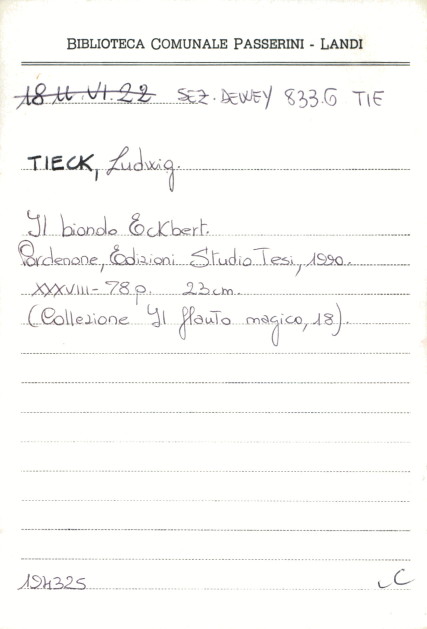 BIBLIOTECA COMUNALE PASSERINI - LANDI
18 U. VI. 22 SEZ. DEWEY 833.6 TIE
TIECK, Ludwig.
Il biondo Eckbert.
Pordenone, Edizioni Studio Tesi, 1990.
XXXVIII- 78 p. 23 cm.
(Collezione Il flauto magico, 18).
194325
C